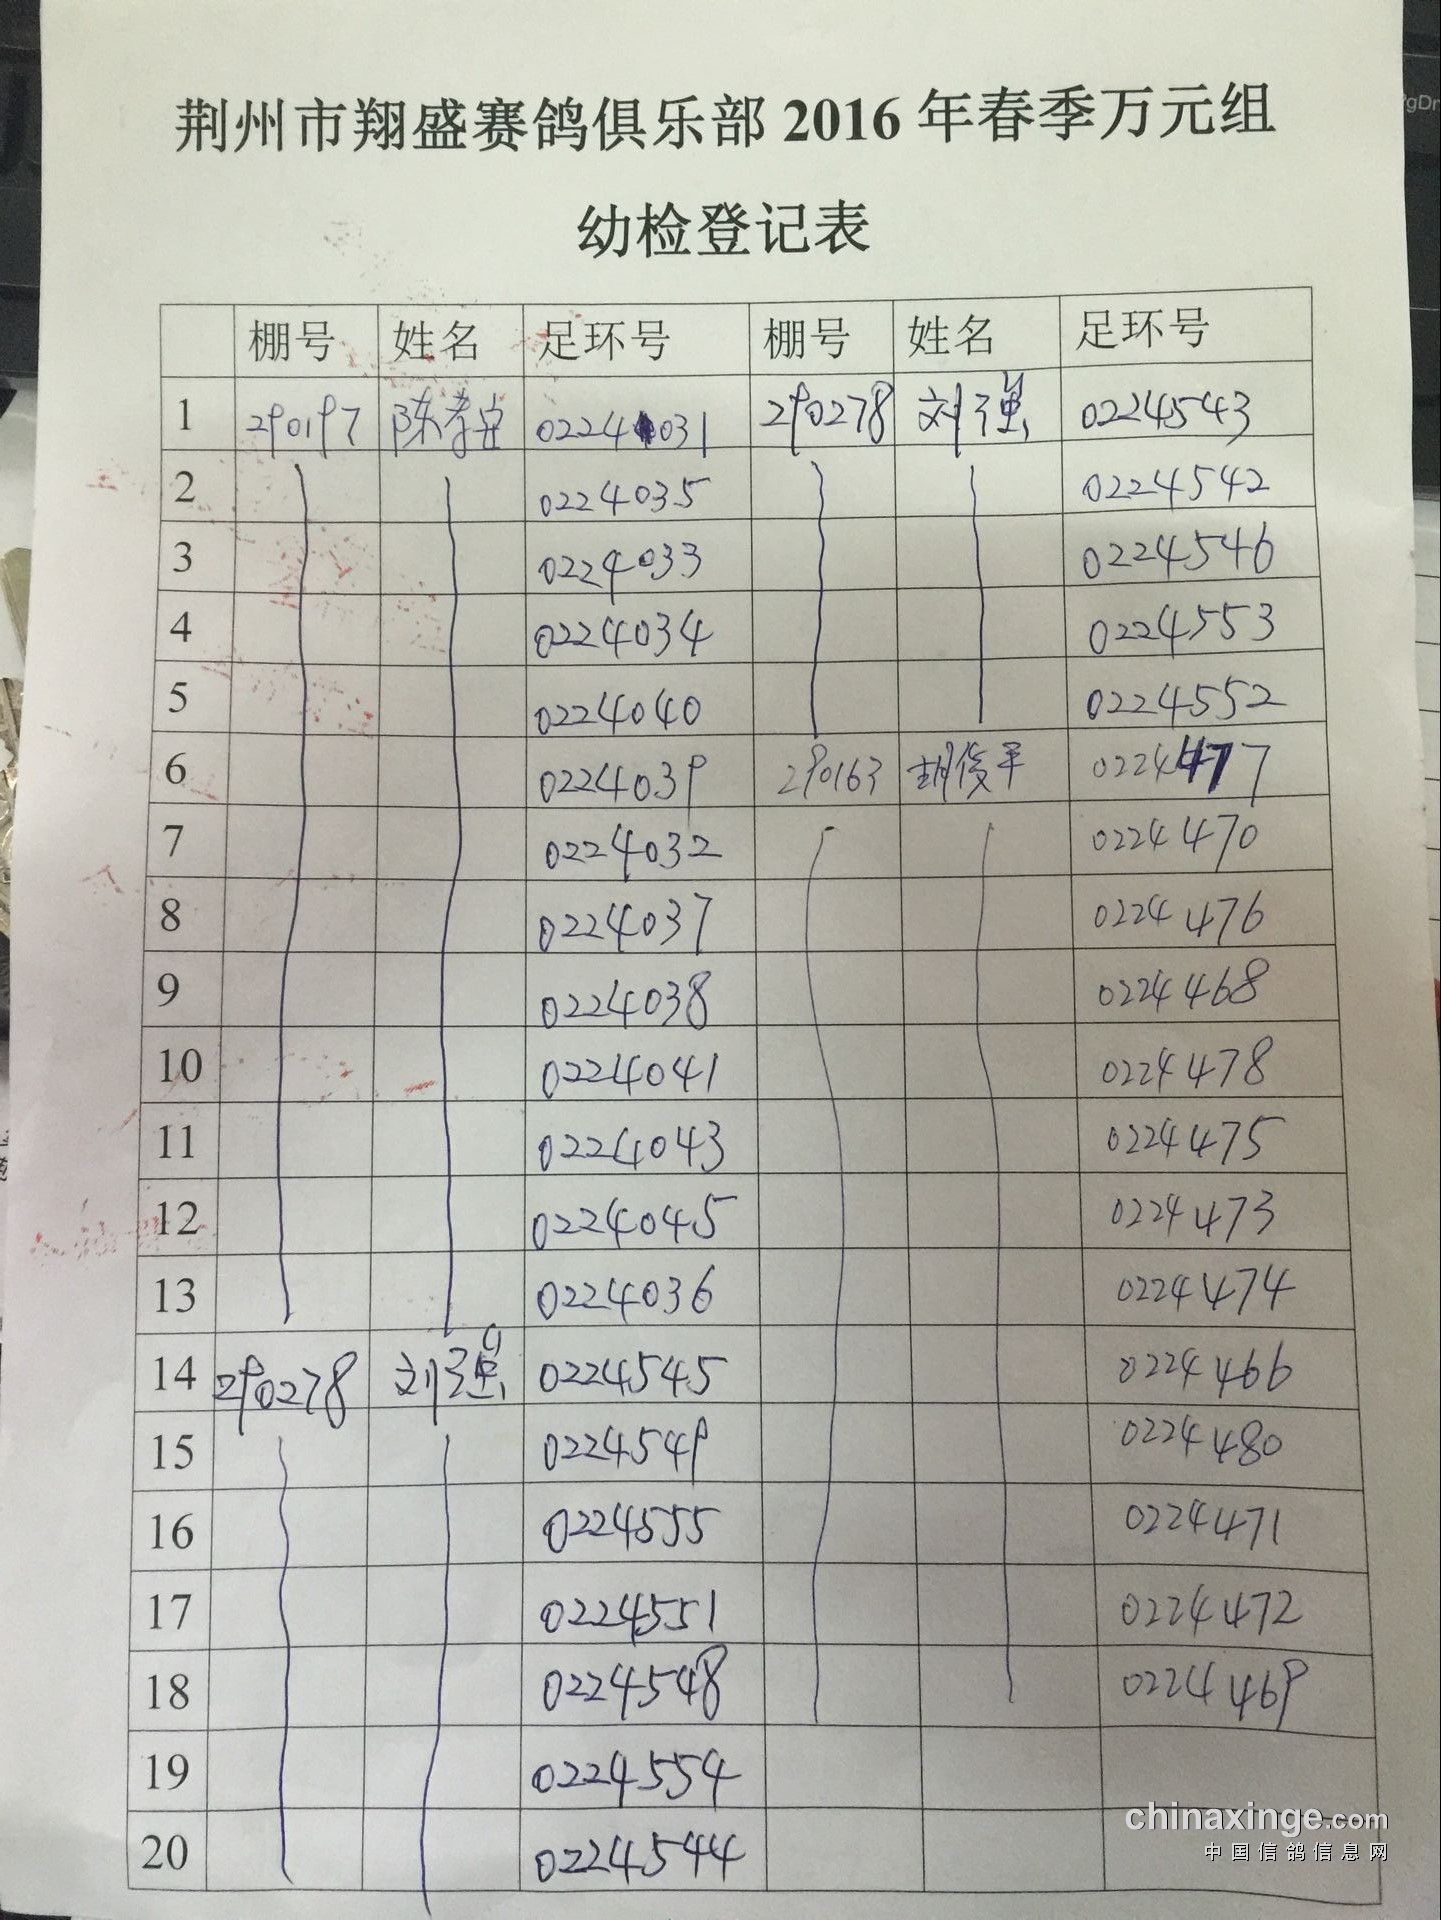 荆州市翔盛赛鸽俱乐部 2016 年春季万元组
幼检登记表
棚号 姓名 足环号 棚号 姓名 足环号
1 290197 陈孝 0224031 290278 刘强 0224543
2 0224035 0224542
3 0224033 0224546
4 0224034 0224553
5 0224040 0224552
6 0224039 290163 胡俊平 0224477
7 0224032 0224470
8 0224037 0224476
9 0224038 0224468
10 0224041 0224478
11 0224043 0224475
12 0224045 0224473
13 0224036 0224474
14 290278 刘强 0224545 0224466
15 0224549 0224480
16 0224555 0224471
17 0224551 0224472
18 0224548 0224469
19 0224554
20 0224544
chinaxinge.com
中国信鸽信息网